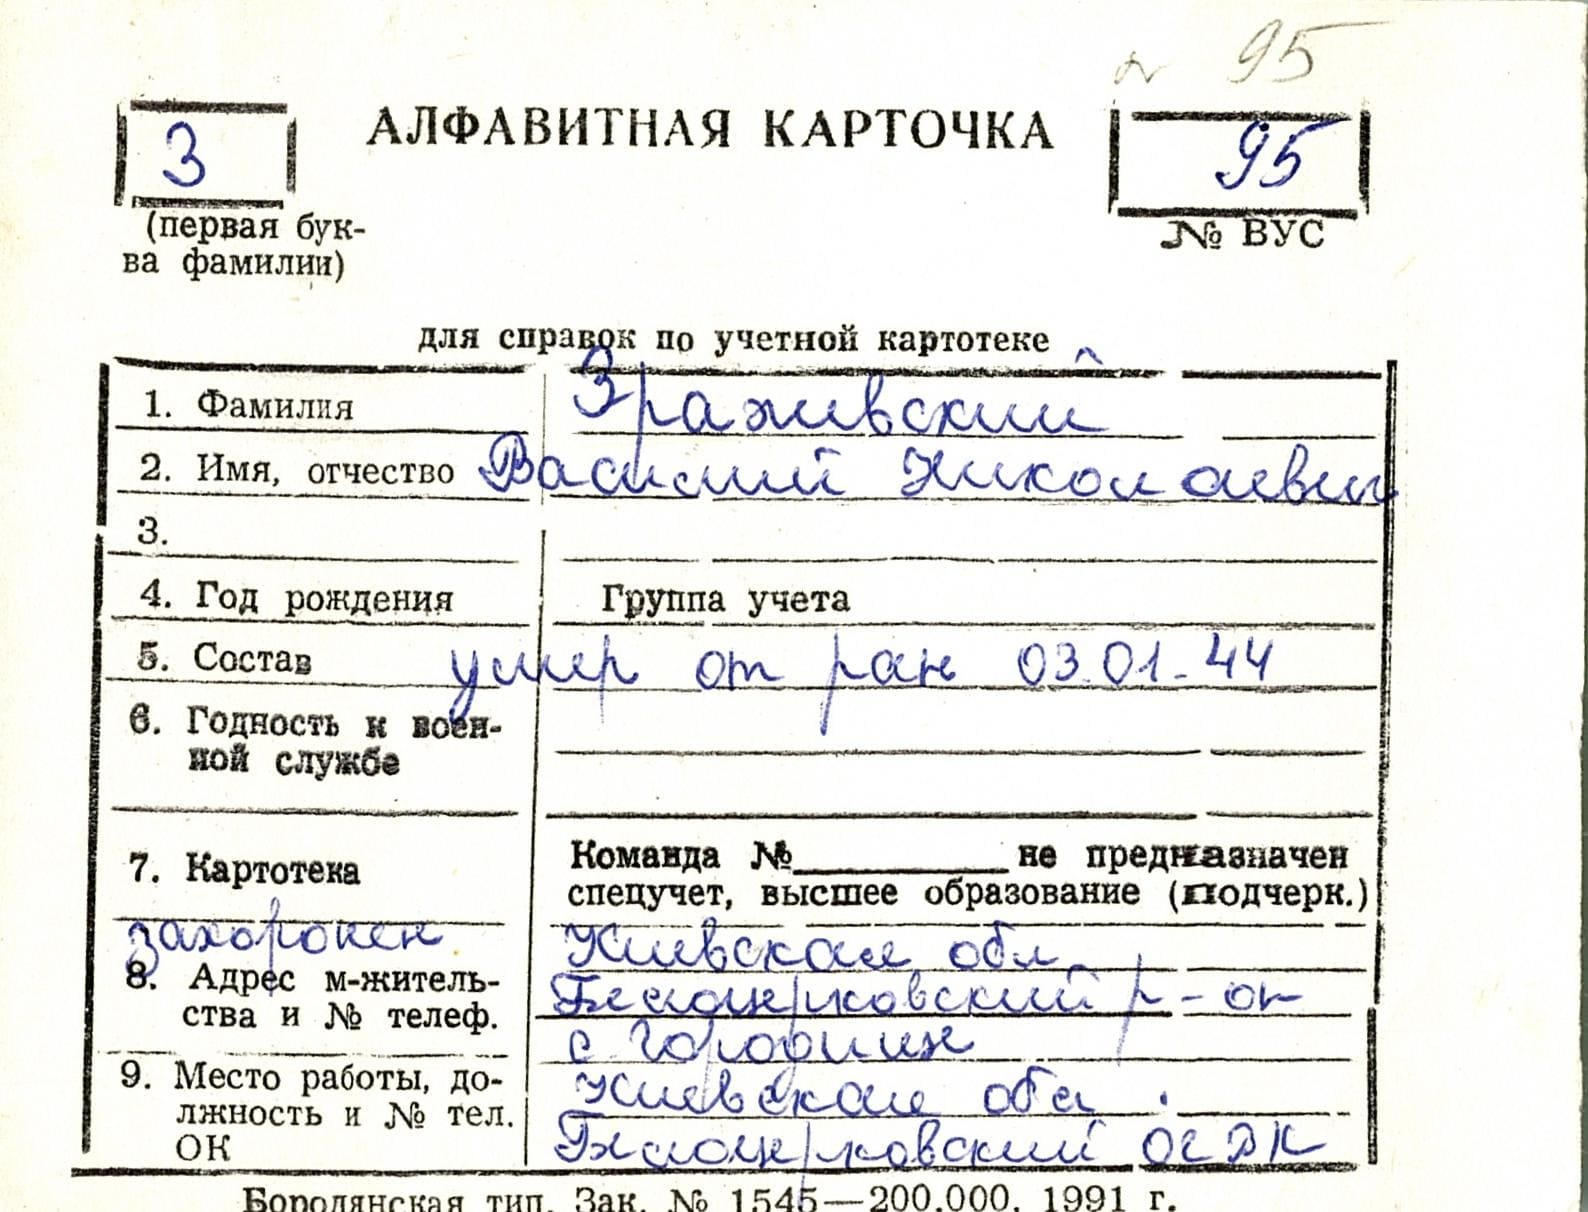 № 95
АЛФАВИТНАЯ КАРТОЧКА
З
95
(первая бук-
ва фамилии)
№ ВУС
для справок по учетной картотеке
1. Фамилия Зраживский
2. Имя, отчество Василий Николаевич
3.
4. Год рождения Группа учета
5. Состав умер от ран 03.01-44
6. Годность к воен-
ной службе
7. Картотека Команда №__________не предназначен
спецучет, высшее образование (подчерк.)
захоронен Киевская обл
8. Адрес м-житель- Белоцерковский р-он
ства и № телеф. с
9. Место работы, до- Киевская обл.
лжность и № тел. Белоцерковский
ОК
Бородянская тип. Зак. № 1545—200.000. 1991 г.